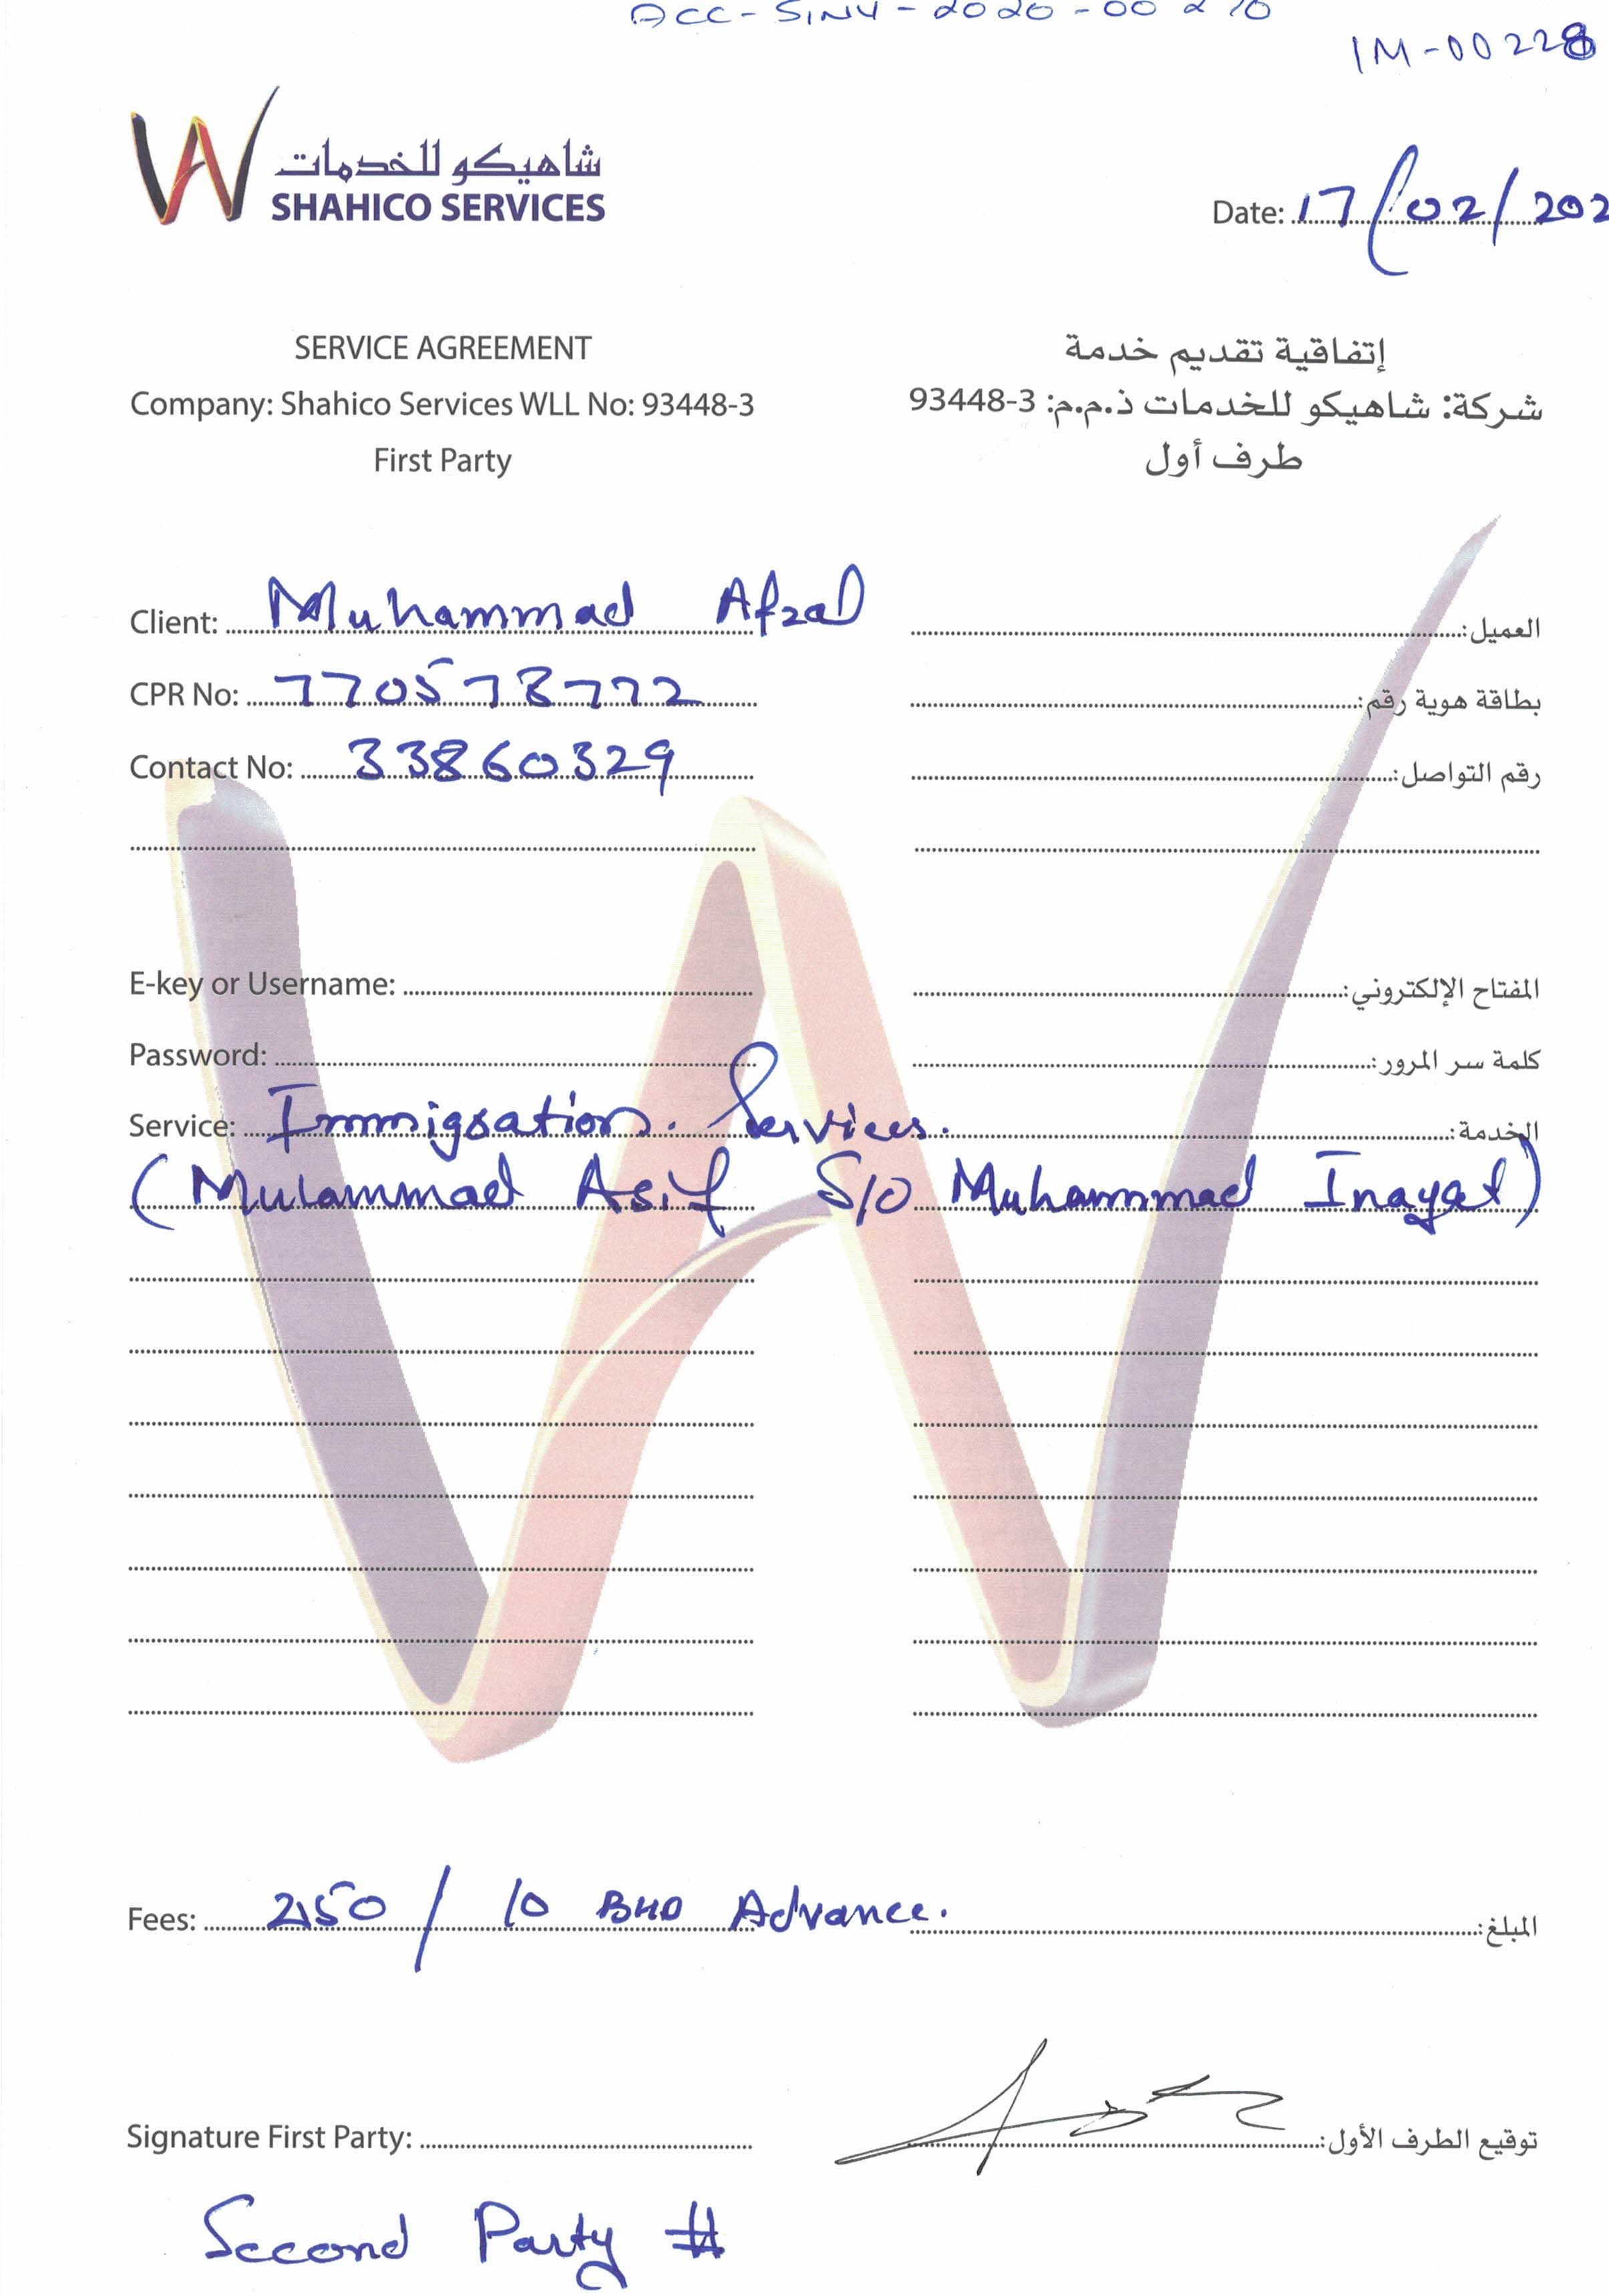 ACC-SINV-2020-00210
IM-00228
شاهيكو للخدمات
SHAHICO SERVICES
Date: 17/02/202
SERVICE AGREEMENT
إتفاقية تقديم خدمة
Company: Shahico Services WLL No: 93448-3
شركة: شاهيكو للخدمات ذ.م.م: 3-93448
First Party
طرف أول
Client: Muhammad Afzal
العميل:
CPR No:
بطاقة هوية رقم:
Contact No: 33860329
رقم التواصل:
E-key or Username:
المفتاح الإلكتروني:
Password:
كلمة سر المرور:
Service: Immigration. Services.
الخدمة:
(Muhammad Asif S/O Muhammad Inayat)
Fees: / 10 BHD Advance.
المبلغ:
Signature First Party:
توقيع الطرف الأول:
Second Party #